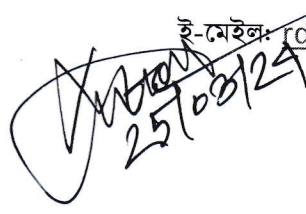 ই-মেইল: ro
25/03/24